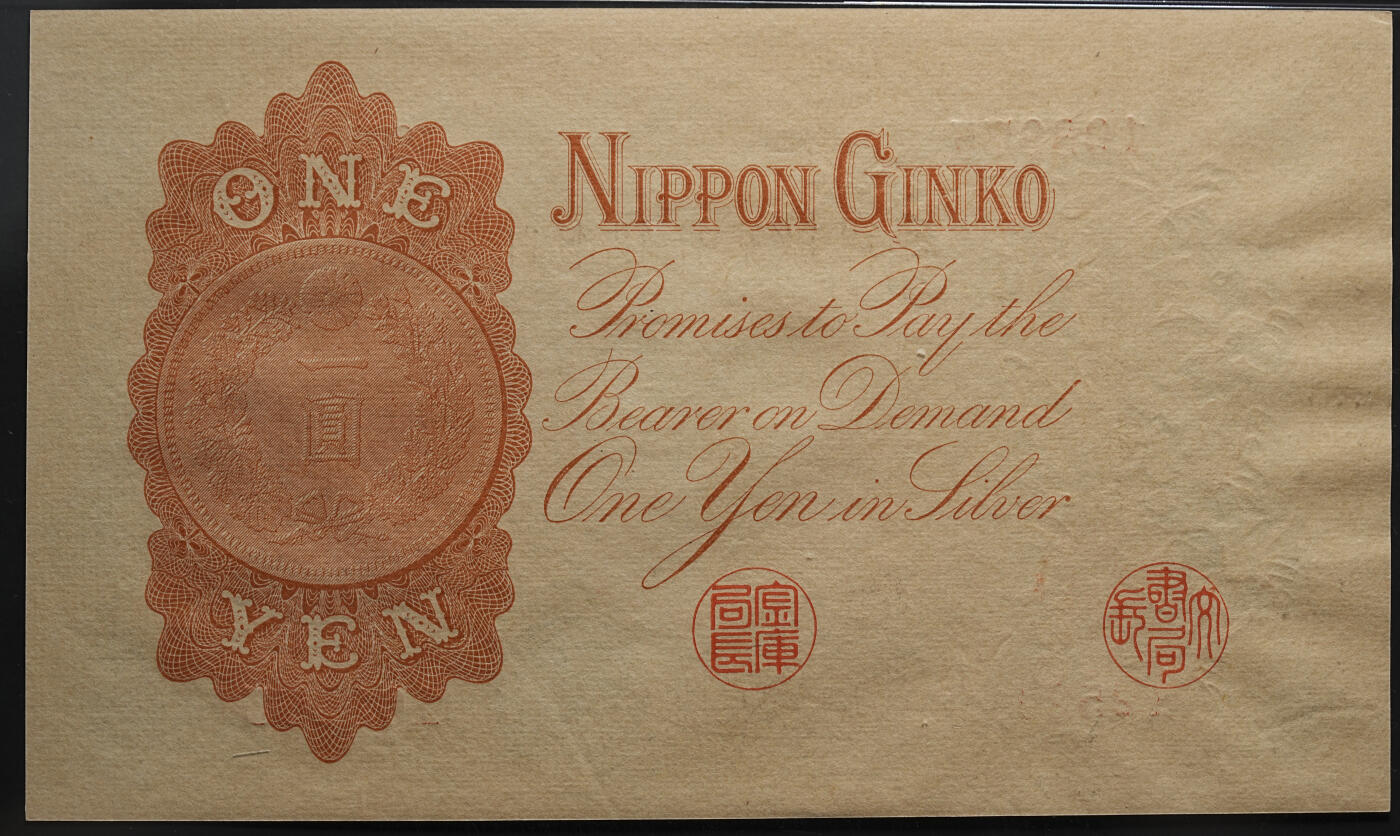 ONE
一
圓
YEN
NIPPON GINKO
Promises to Pay the
Bearer on Demand
One Yen in Silver
金庫局長
文書局長